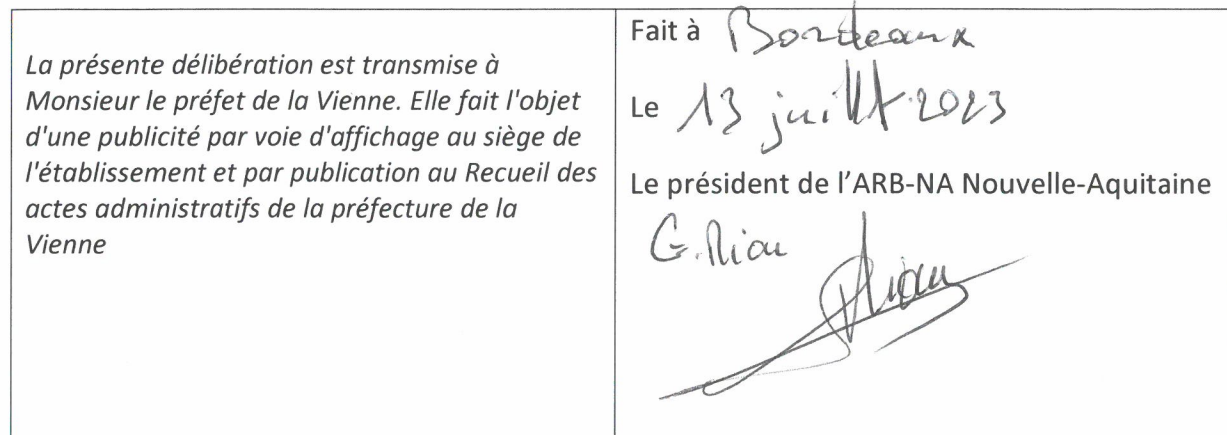 La présente délibération est transmise à
Monsieur le préfet de la Vienne. Elle fait l'objet
d'une publicité par voie d'affichage au siège de
l'établissement et par publication au Recueil des
actes administratifs de la préfecture de la
Vienne
Fait à Bordeaux
Le 13 juillet 2023
Le président de l'ARB-NA Nouvelle-Aquitaine
G. Riou
Riou